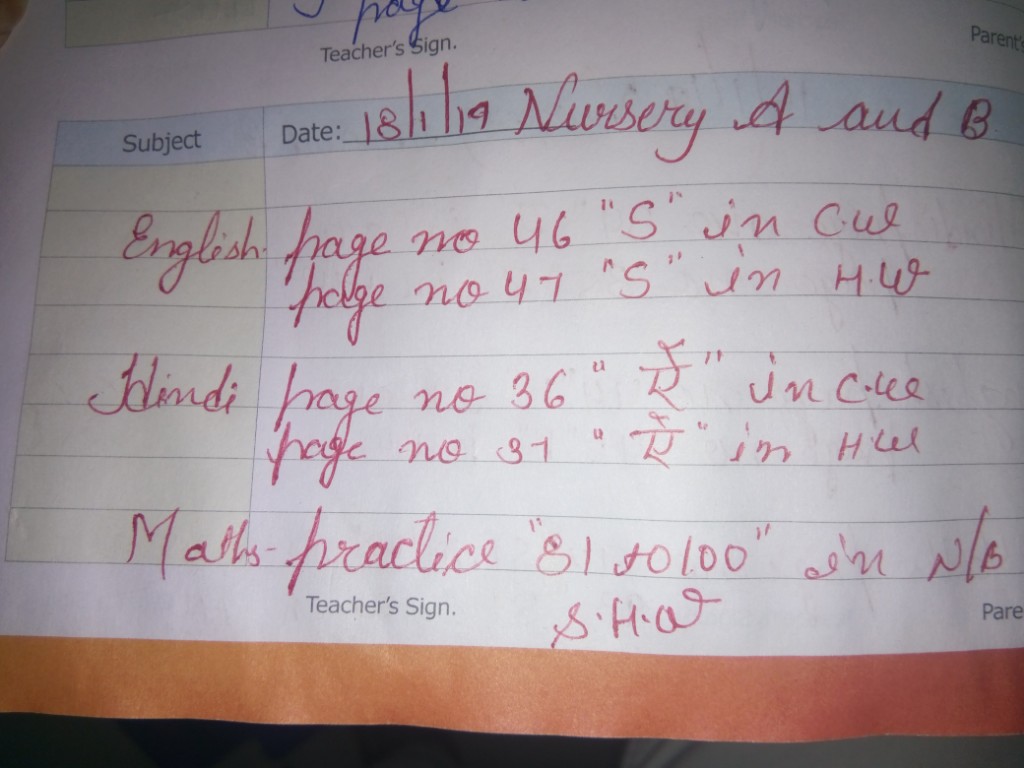 page
Teacher's Sign.
Parent's
Subject Date: 18/1/19 Nursery A and B
English page no 46 "S" in C.W
page no 47 "S" in H.W
Hindi page no 36 "ऐ" in C.W
page no 37 "ऐ" in H.W
Maths- practice "81 to 100" in N/B
Teacher's Sign. S.H.W Pare